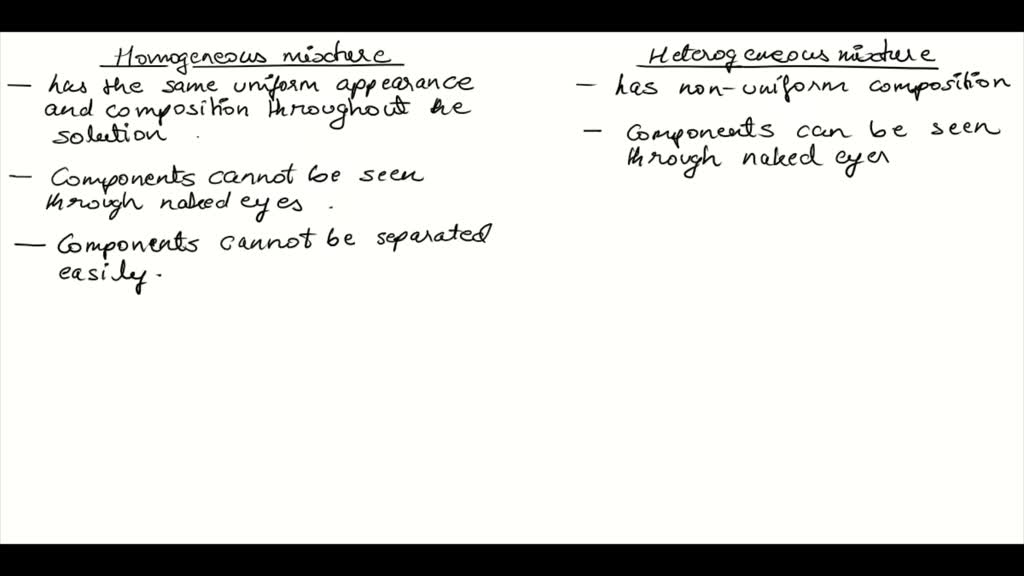 Homogeneous mixture
— has the same uniform appearance
and composition throughout the
solution .
— Components cannot be seen
through naked eyes .
— Components cannot be separated
easily .
Heterogeneous mixture
– has non-uniform composition
– Components can be seen
through naked eyes